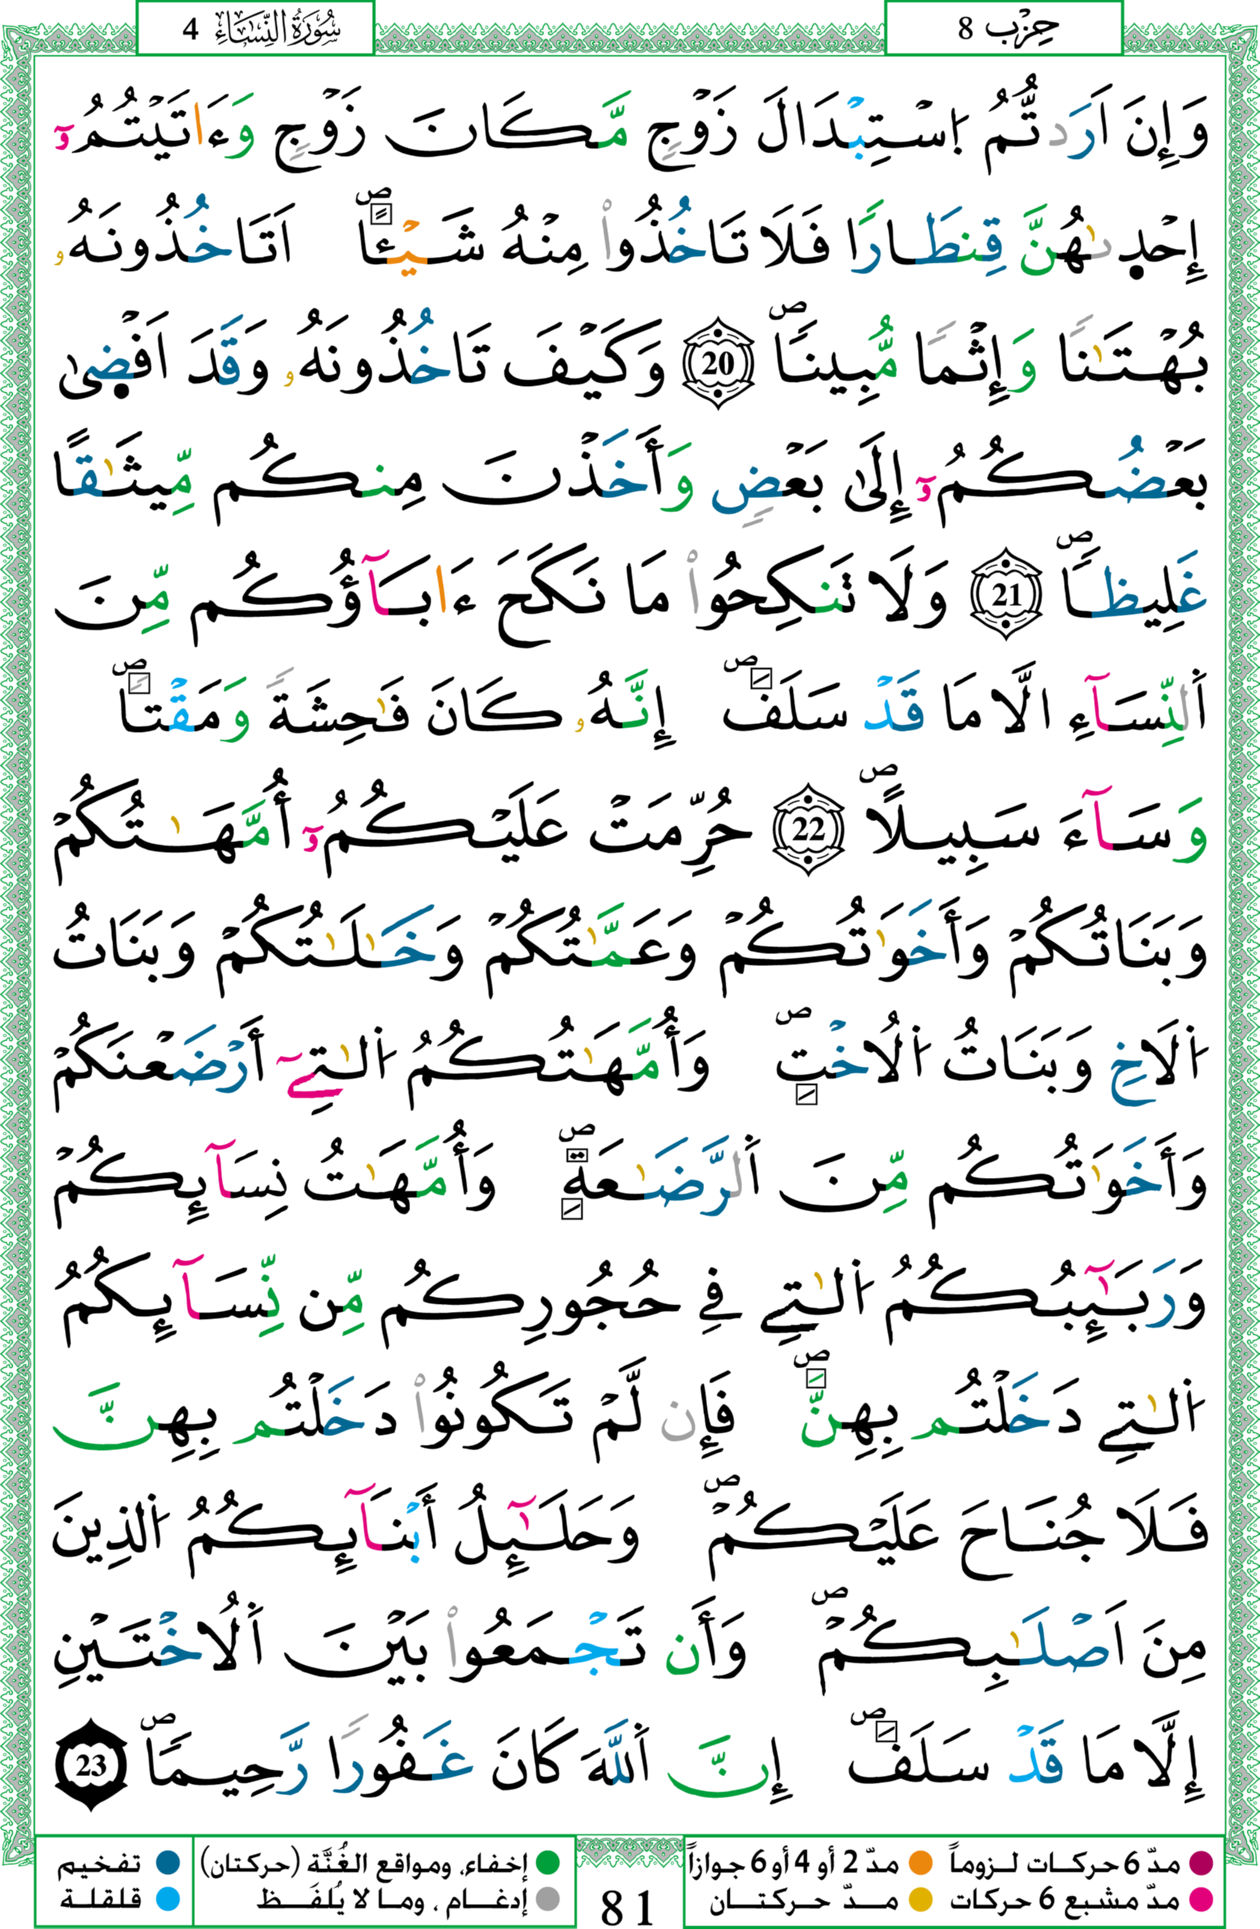 سُورَةُ النِّسَاءِ 4
حِزْب 8
وَإِنَ اَرَدتُّمُ اُ۪سْتِبْدَالَ زَوْجٖ مَّكَانَ زَوْجٖ وَءَاتَيْتُمُۥٓ
إِحْد۪يٰهُنَّ قِنطَاراٗ فَلَا تَاخُذُواْ مِنْهُ شَيْـٔاًۖ اَتَاخُذُونَهُۥ
بُهْتَٰناٗ وَإِثْماٗ مُّبِيناٗۖ 20 وَكَيْفَ تَاخُذُونَهُۥ وَقَدَ اَفْض۪يٰ
بَعْضُكُمُۥٓ إِلَىٰ بَعْضٖ وَأَخَذْنَ مِنكُم مِّيثَٰقاً
غَلِيظاٗۖ 21 وَلَا تَنكِحُواْ مَا نَكَحَ ءَابَآؤُكُم مِّنَ
اَ۬لنِّسَآءِ الَّا مَا قَدْ سَلَفَۖ إِنَّهُۥ كَانَ فَٰحِشَةٗ وَمَقْتاٗۖ
وَسَآءَ سَبِيلاًۖ 22 حُرِّمَتْ عَلَيْكُمُۥٓ أُمَّهَٰتُكُمْ
وَبَنَاتُكُمْ وَأَخَوَٰتُكُمْ وَعَمَّٰتُكُمْ وَخَٰلَٰتُكُمْ وَبَنَاتُ
اُ۬لَاخِ وَبَنَاتُ اُ۬لُاخْتِۖ وَأُمَّهَٰتُكُمُ اُ۬لٰتِےٓ أَرْضَعْنَكُمْ
وَأَخَوَٰتُكُم مِّنَ اَ۬لرَّضَٰعَةِۖ وَأُمَّهَٰتُ نِسَآئِكُمْ
وَرَبَٰٓئِبُكُمُ اُ۬لٰتِے فِے حُجُورِكُم مِّن نِّسَآئِكُمُ
اُ۬لٰتِے دَخَلْتُم بِهِنَّۖ فَإِن لَّمْ تَكُونُواْ دَخَلْتُم بِهِنَّ
فَلَا جُنَاحَ عَلَيْكُمْۖ وَحَلَٰٓئِلُ أَبْنَآئِكُمُ اُ۬لذِينَ
مِنَ اَصْلَٰبِكُمْۖ وَأَن تَجْمَعُواْ بَيْنَ اَ۬لُاخْتَيْنِ
إِلَّا مَا قَدْ سَلَفَۖ إِنَّ اَ۬للَّهَ كَانَ غَفُوراٗ رَّحِيماٗۖ 23
مدّ 6 حركات لـزوماً مدّ 2 أو 4 أو 6 جوازاً
مدّ مشبع 6 حركات مـدّ حـركتـان
إخفاء، ومواقع الغُنَّة (حركتان) تفخيم
إدغـام ، ومـا لا يُلفَـظ قلقلة
81